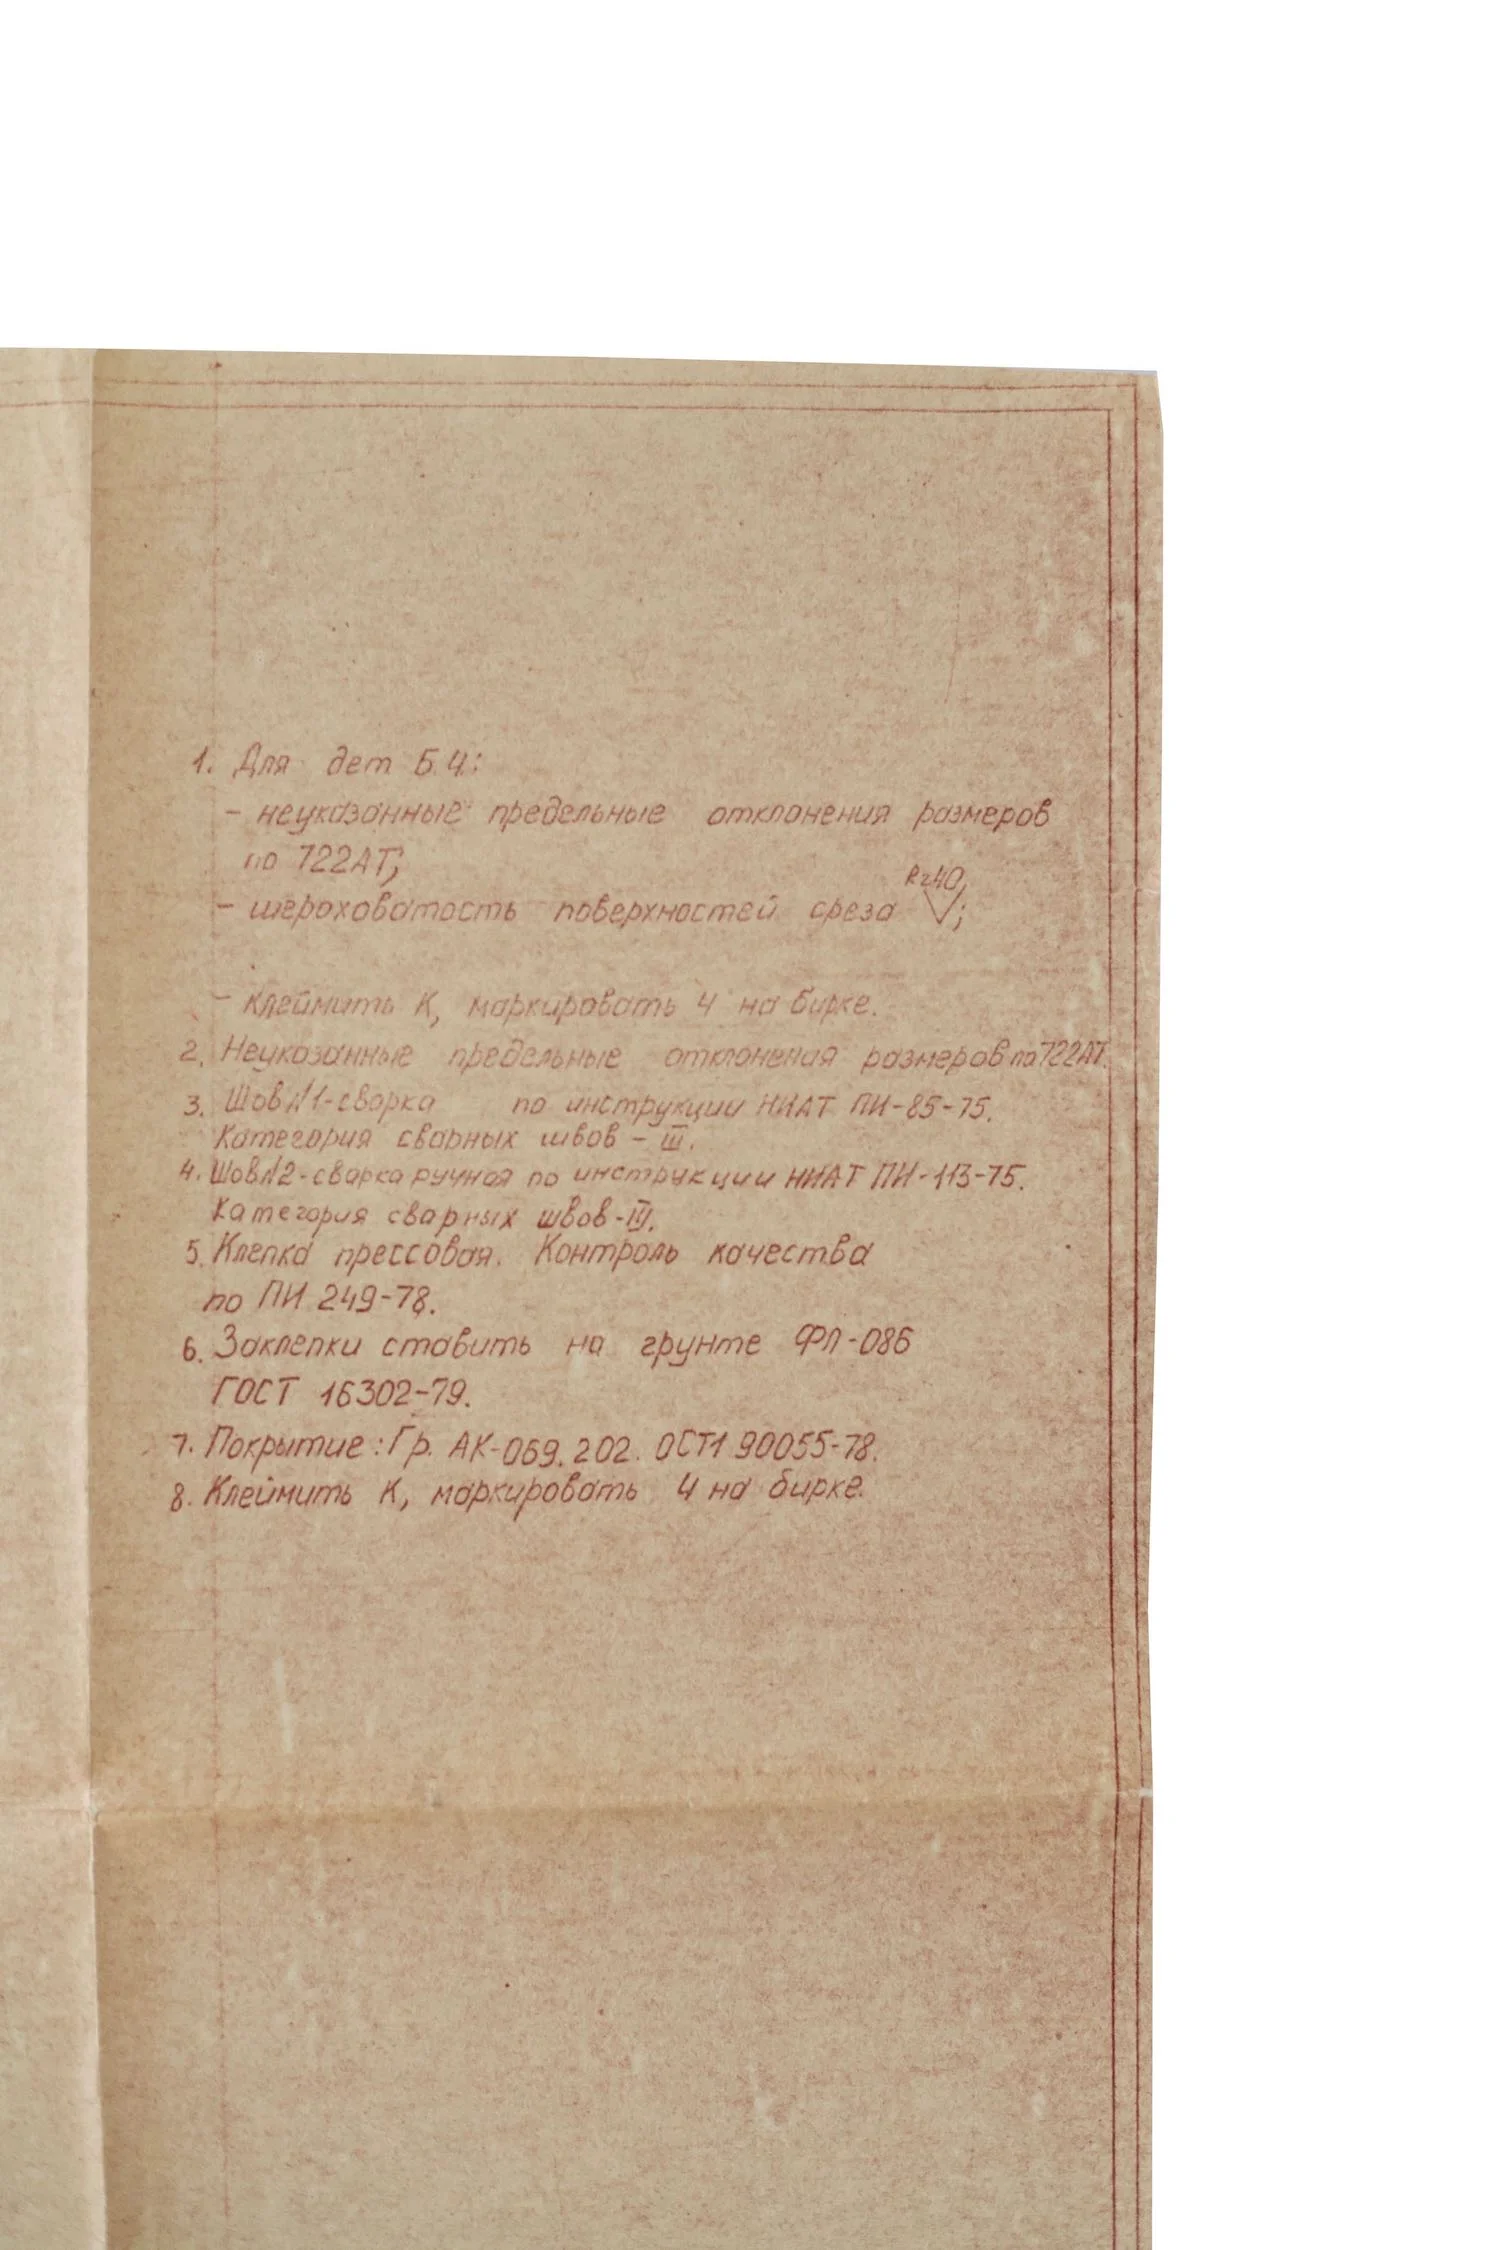 1. Для дет Б.Ч.:
- неуказанные предельные отклонения размеров
по 722АТ;
- шероховатость поверхностей среза Rz40;
- клеймить К, маркировать Ч на бирке.
2. Неуказанные предельные отклонения размеров по 722АТ.
3. Шов №1-сварка по инструкции НИАТ ПИ-85-75.
Категория сварных швов - III.
4. Шов №2-сварка ручная по инструкции НИАТ ПИ-113-75.
Категория сварных швов-IV.
5. Клепка прессовая. Контроль качества
по ПИ 249-78.
6. Заклепки ставить на грунте ФЛ-086
ГОСТ 16302-79.
7. Покрытие: Гр. АК-069.202. ОСТ1 90055-78.
8. Клеймить К, маркировать Ч на бирке.